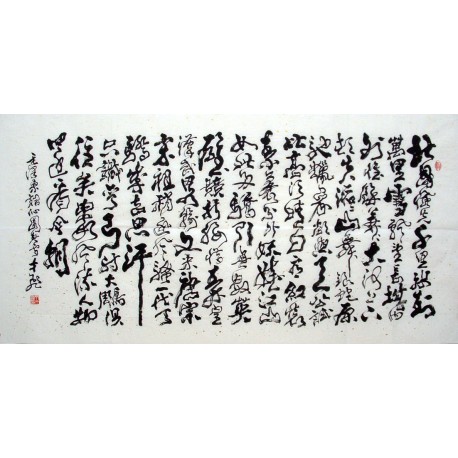 北国风光千里冰封
萬里雪飘望长城内
外惟余莽莽大河上下
顿失滔滔山舞银蛇原
驰蜡象欲与天公试
比高须晴日看红装
素裹分外妖娆江山
如此多娇引无数英
雄竞折腰惜秦皇
汉武略输文采唐宗
宋祖稍逊风骚一代天
骄成吉思汗
只識弯弓射大鵰俱
往矣数风流人物
还看今朝
毛泽东词沁园春雪